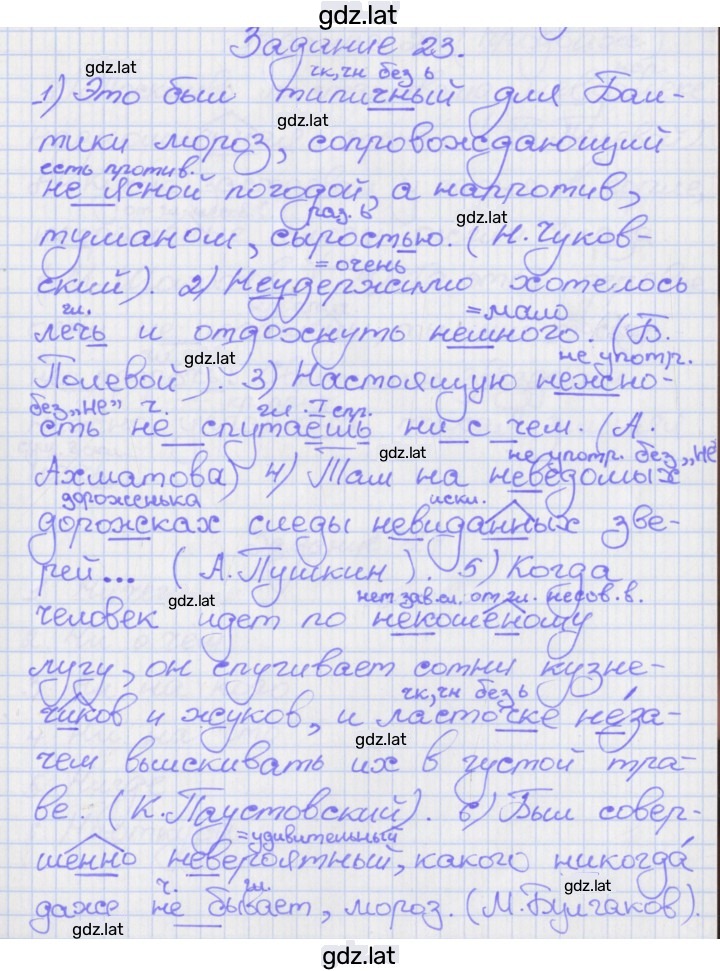 gdz.lat
Задание 23.
gdz.lat
чк, чн без ь
1) Это был типичный для Бал-
gdz.lat
тики мороз, сопровождающийся
есть против.
не ясной погодой, а напротив,
раз. ь
gdz.lat
туманом, сыростью. (Н. Чуков-
=очень
ский). 2) Неудержимо хотелось
гл.
=мало
лечь и отдохнуть немного. (Б.
gdz.lat
не употр.
Полевой). 3) Настоящую нежно-
без „не" ч.
гл. I спр.
сть не спутаешь ни с чем. (А.
gdz.lat
не употр. без „не"
Ахматова) 4) Там на неведомых
дороженька
искл.
дорожках следы невиданных зве-
рей... (А. Пушкин). 5) Когда
gdz.lat
нет зав. сл. от гл. несов. в.
человек идет по некошеному
лугу, он спугивает сотни кузне-
чк, чн без ь
чиков и жуков, и ласточке не́за-
gdz.lat
чем выискивать их в густой тра-
ве. (К. Паустовский). 6) Был совер-
=удивительный
шенно невероятный, какого никогда́
ч.
гл.
gdz.lat
даже не бывает, мороз. (М. Булгаков).
gdz.lat
gdz.lat